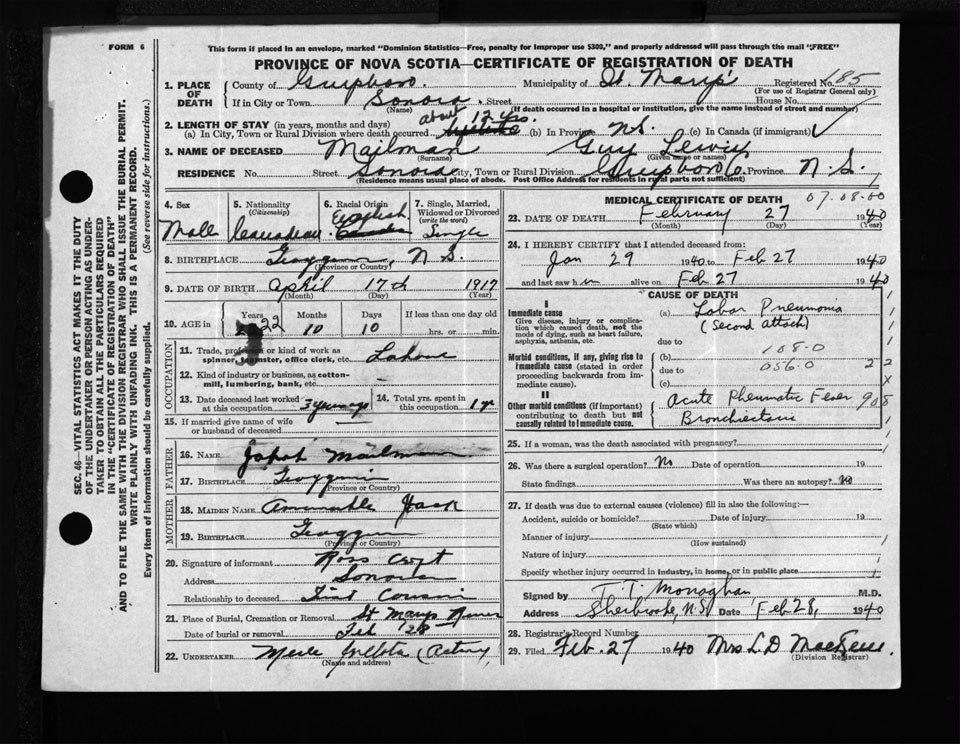 FORM 6
This form if placed in an envelope, marked "Dominion Statistics—Free, penalty for improper use $300," and properly addressed will pass through the mail "FREE"
PROVINCE OF NOVA SCOTIA—CERTIFICATE OF REGISTRATION OF DEATH
1. PLACE OF DEATH
County of Guysboro. Municipality of St. Mary's Registered No. 185
(For use of Registrar General only)
If in City or Town Sonora. Street House No.
(Name) (If death occurred in a hospital or institution, give the name instead of street and number)
2. LENGTH OF STAY (in years, months and days) about 12 yrs.
(a) In City, Town or Rural Division where death occurred (b) In Province N.S. (c) In Canada (if immigrant) ✓
3. NAME OF DECEASED Mailman Guy Lewis
(Surname) (Given name or names)
RESIDENCE No. Street Sonora City, Town or Rural Division Guysboro Co. Province N.S.
(Residence means usual place of abode. Post Office Address for residents in rural parts not sufficient)
4. Sex Male
5. Nationality (Citizenship) Canadian.
6. Racial Origin English
7. Single, Married, Widowed or Divorced (write the word) Single
8. BIRTHPLACE N.S.
(Province or Country)
9. DATE OF BIRTH April 17th 1917
(Month) (Day) (Year)
10. AGE in Years 22 Months 10 Days 10 If less than one day old hrs. or min.
OCCUPATION
11. Trade, profession or kind of work as spinner, teamster, office clerk, etc.
12. Kind of industry or business, as cotton-mill, lumbering, bank, etc.
13. Date deceased last worked at this occupation 3 years
14. Total yrs. spent in this occupation 1 yr
15. If married give name of wife or husband of deceased
FATHER
16. NAME Mailman
17. BIRTHPLACE
(Province or Country)
MOTHER
18. MAIDEN NAME
19. BIRTHPLACE
(Province or Country)
20. Signature of informant Ross
Address Sonora
Relationship to deceased First Cousin
21. Place of Burial, Cremation or Removal St Marys River
Date of burial or removal Feb 28
22. UNDERTAKER Merle (Acting)
(Name and address)
MEDICAL CERTIFICATE OF DEATH 07-08-00
23. DATE OF DEATH February 27 1940
(Month) (Day) (Year)
24. I HEREBY CERTIFY that I attended deceased from:
Jan 29 1940 to Feb 27 1940
and last saw him alive on Feb 27 1940
CAUSE OF DEATH
I
Immediate cause
Give disease, injury or complication which caused death, not the mode of dying, such as heart failure, asphyxia, asthenia, etc.
(a) Lobar Pneumonia
(Second attack)
due to
108-0
Morbid conditions, if any, giving rise to immediate cause (stated in order proceeding backwards from immediate cause).
(b)
due to 056-0 22
(c) x
II
Other morbid conditions (if important) contributing to death but not causally related to immediate cause.
Acute Rheumatic Fever 905
Bronchiectasis
25. If a woman, was the death associated with pregnancy?
26. Was there a surgical operation? No Date of operation 19
State findings Was there an autopsy? No
27. If death was due to external causes (violence) fill in also the following:—
Accident, suicide or homicide? Date of injury 19
(State which)
Manner of injury
(How sustained)
Nature of injury
Specify whether injury occurred in industry, in home, or in public place
Signed by T. Monaghan M.D.
Address Sherbrooke, N.S. Date Feb 28, 1940
28. Registrar's Record Number
29. Filed Feb. 27 1940 Mrs L. D
(Division Registrar)
SEC. 46—VITAL STATISTICS ACT MAKES IT THE DUTY
OF THE UNDERTAKER OR PERSON ACTING AS UNDERTAKER TO OBTAIN ALL THE PARTICULARS REQUIRED
IN THE "CERTIFICATE OF REGISTRATION OF DEATH"
AND TO FILE THE SAME WITH THE DIVISION REGISTRAR WHO SHALL ISSUE THE BURIAL PERMIT.
WRITE PLAINLY WITH UNFADING INK. THIS IS A PERMANENT RECORD.
Every item of information should be carefully supplied. (See reverse side for instructions.)